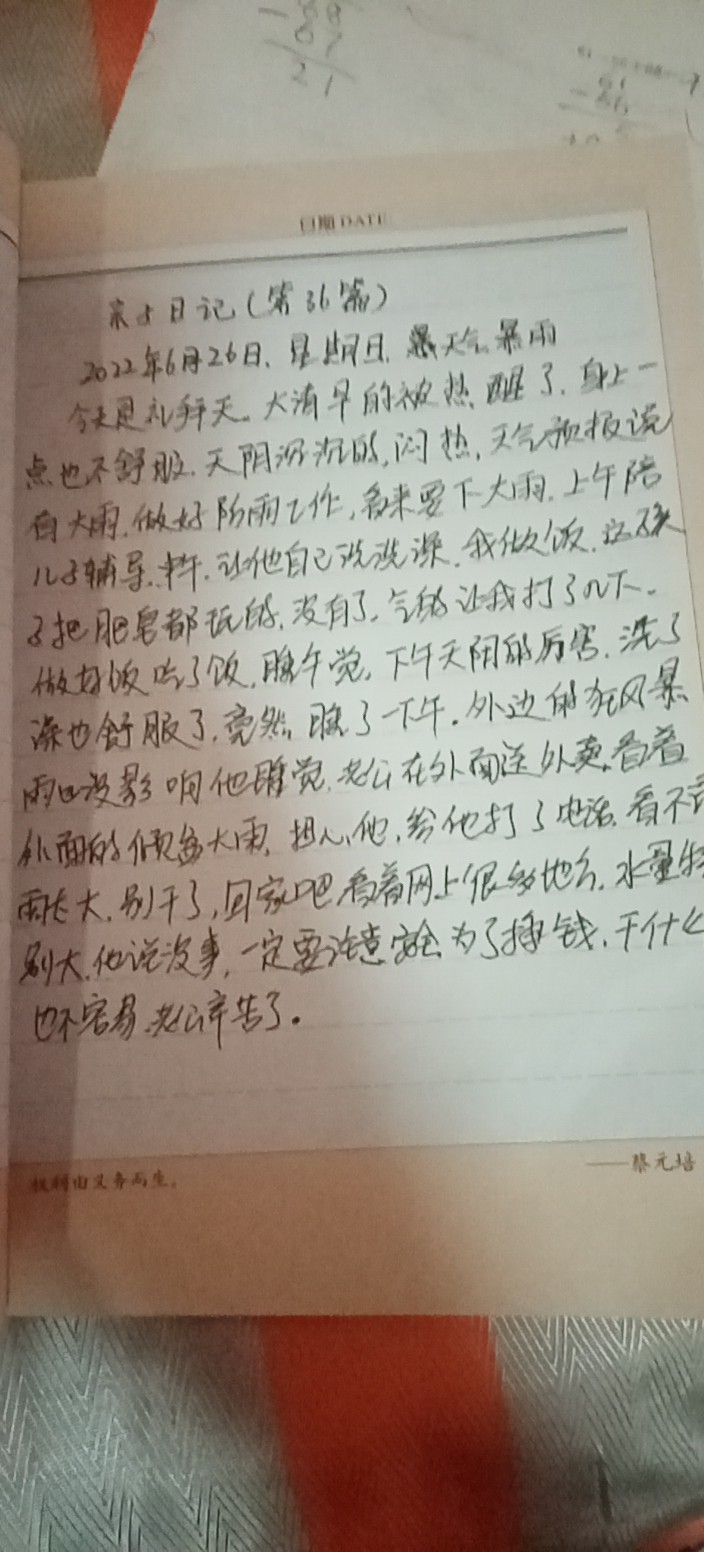 - 88
67
21
日期 DATE
日记(第36篇)
2022年6月26日，星期日，天气暴雨
今天是礼拜天。大清早的被热醒了，身上一
点也不舒服，天阴沉沉的，闷热，天气预报说
有大雨，做好防雨工作，看来要下大雨，上午陪
儿子辅导，中午，让他自己洗洗澡，我做饭，这孩
子把肥皂都玩的，没有了，气的让我打了几下。
做好饭吃了饭，睡午觉，下午天阴的厉害，洗了
澡也舒服了，竟然睡了一下午，外边的狂风暴
雨也没影响他睡觉，老公在外面送外卖，看着
外面的倾盆大雨，担心他，给他打了电话，看不
雨太大，别干了，回家吧，看着网上很多地方，水量特
别大，他说没事，一定要注意安全，为了挣钱，干什么
也不容易，老公辛苦了。
权利由义务而生。
——蔡元培